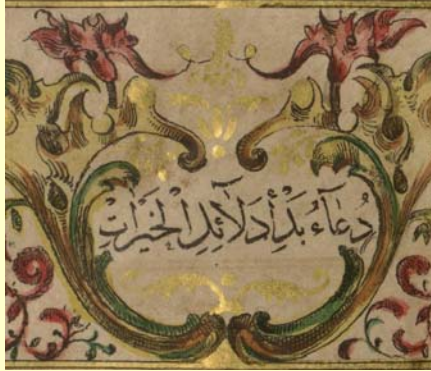 دُعَآءُ بَدْأِ دَلَآئِلِ الْخَيْرَاتِ